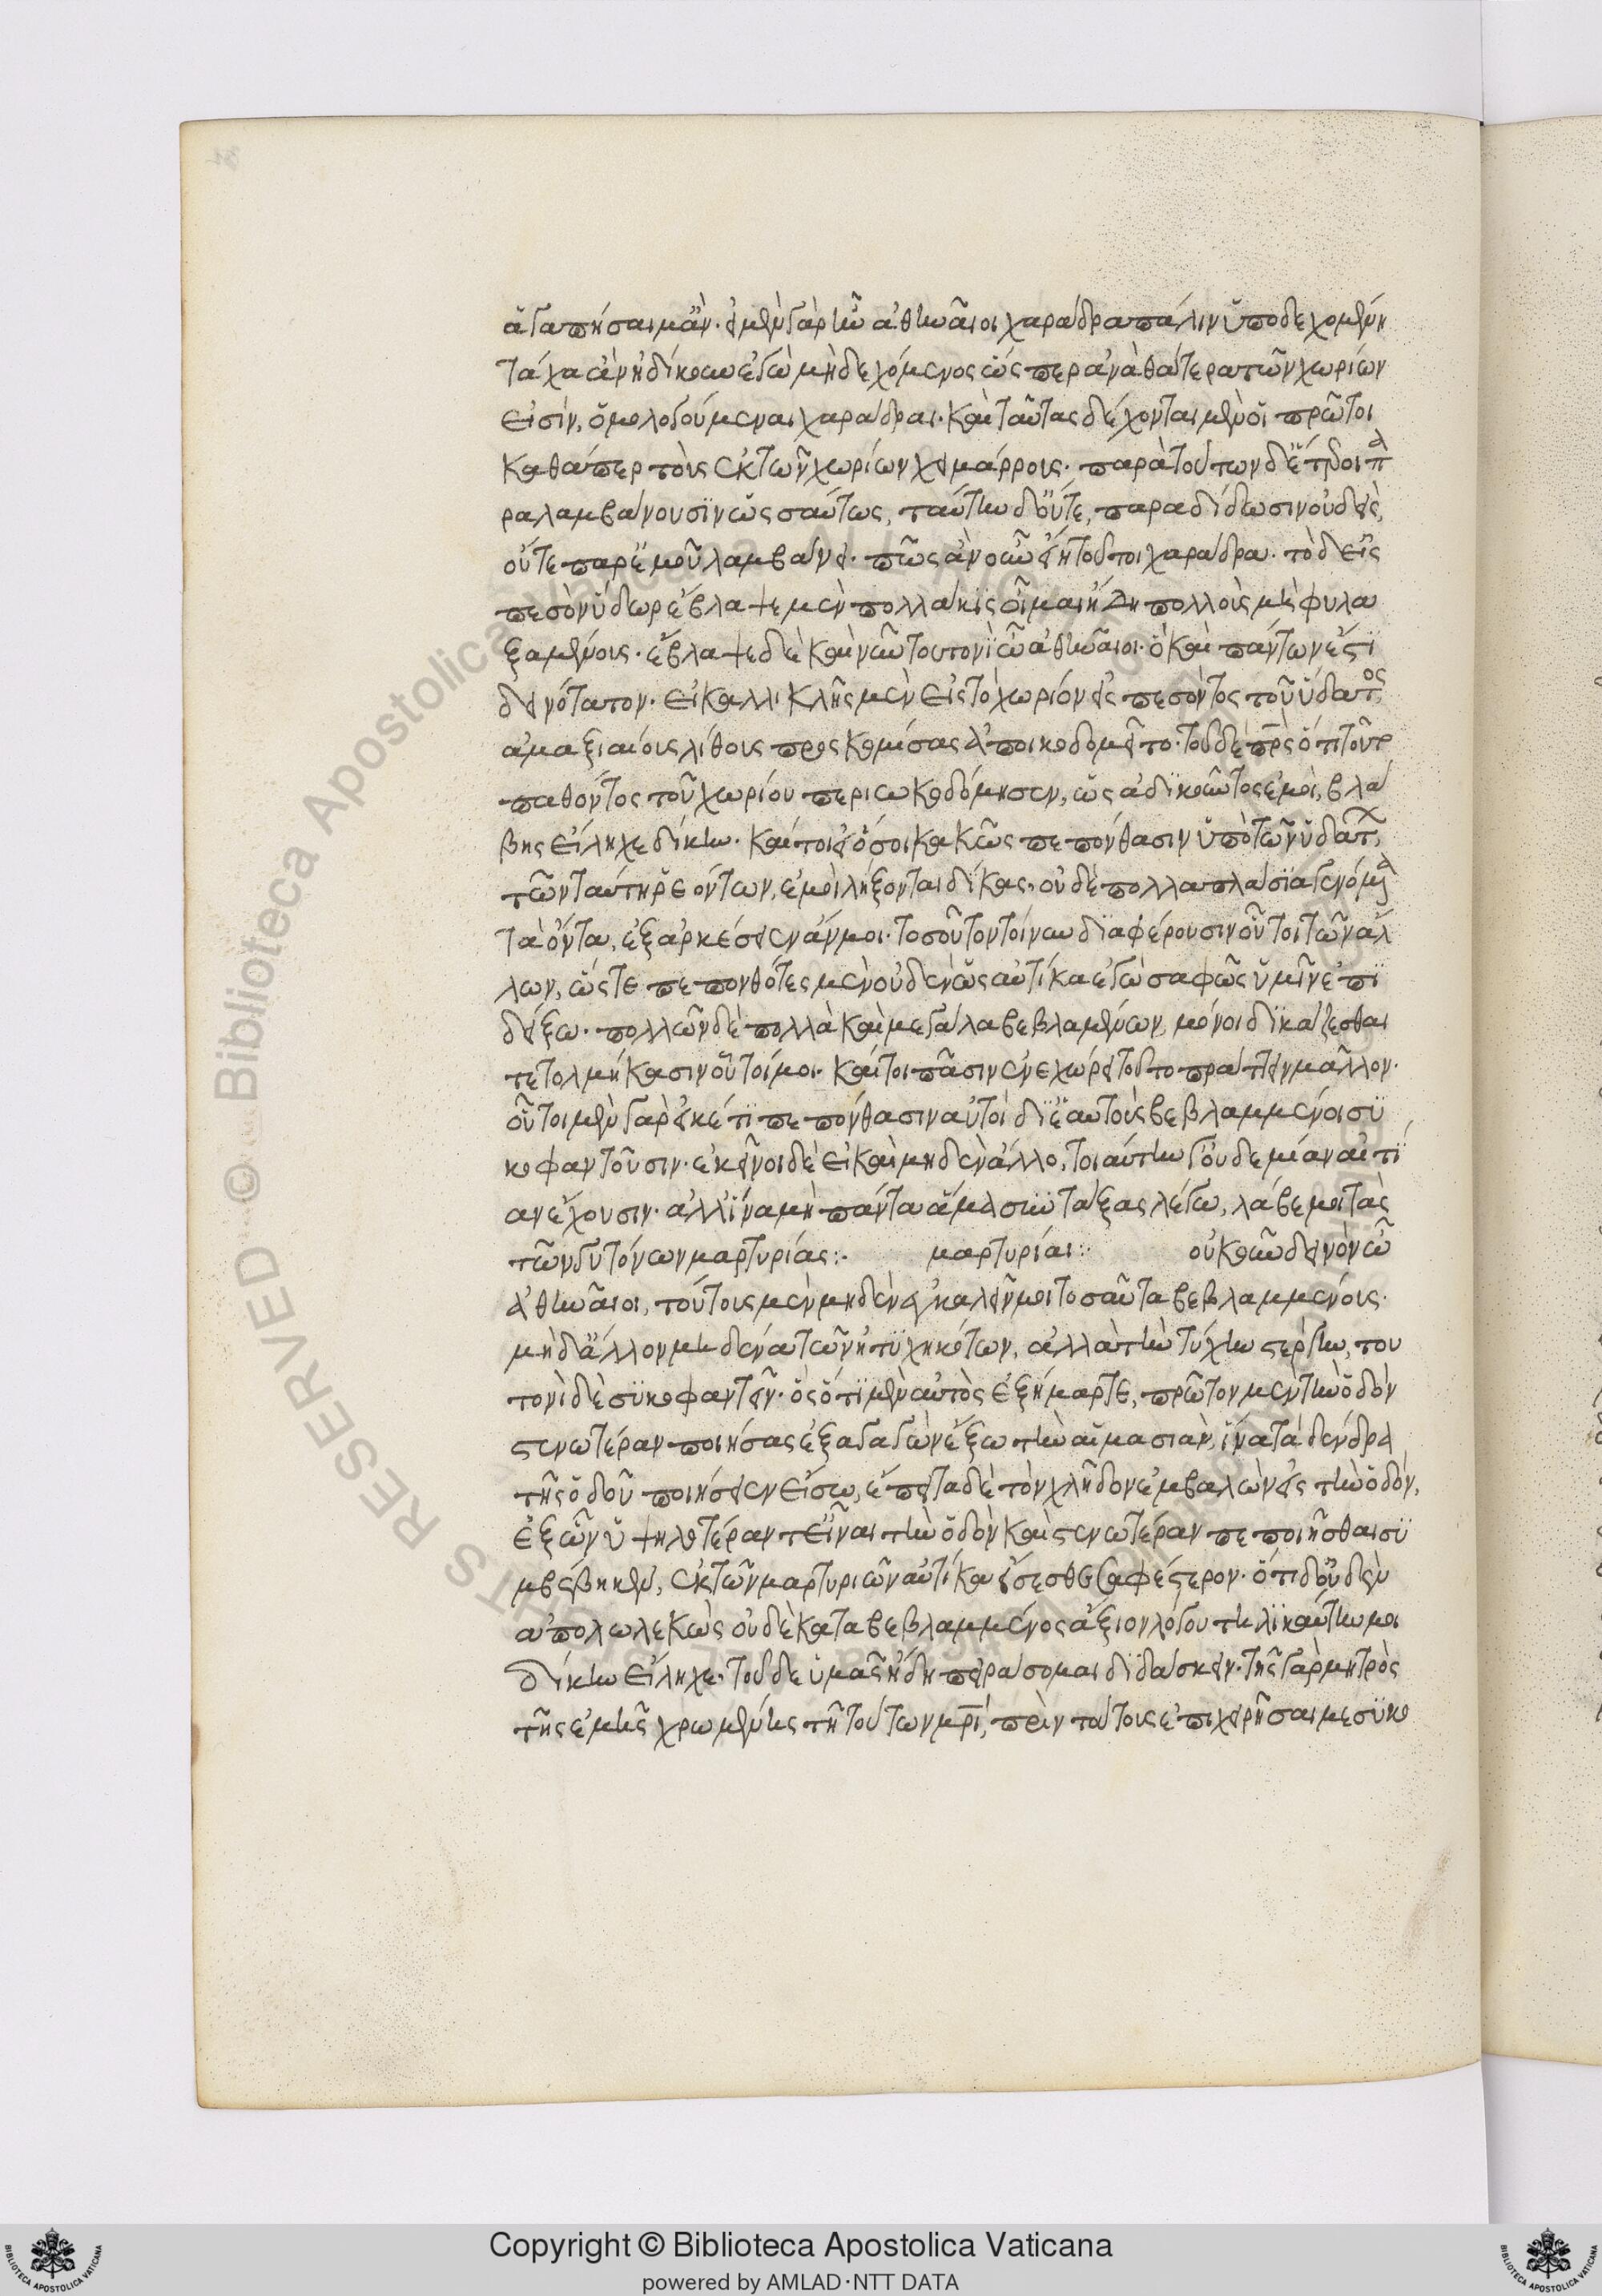 ἀγαπήσαιμ' ἄν. εἰ μὲν γὰρ ἦν ὦ ἀθηναῖοι χαράδρα πάλιν ὑποδεχομένη
τάχα ἂν ἠδίκουν ἐγὼ μὴ δεχόμενος ὥσπερ ἀνὰ θάτερα τῶν χωρίων
εἰσὶν, ὁμολογούμεναι χαράδραι. καὶ ταύτας δέχονται μὲν οἱ πρῶτοι
καθάπερ τοὺς ἐκ τῶν χωρίων χειμάρρους. παρὰ τούτων δ' ἕτεροι πα
ραλαμβάνουσιν ὡσαύτως, ταύτην δ' οὔτε, παραδίδωσιν οὐδεὶς,
οὔτε παρ' ἐμοῦ λαμβάνει. πῶς ἂν οὖν εἴη τοῦτο χαράδρα. τὸ δ' εἰσ
πεσὸν ὕδωρ ἔβλαψε μὲν πολλάκις οἶμαι ἤδη πολλοὺς μὴ φυλα
ξαμένους. ἔβλαψε δὲ καὶ νῦν τουτονὶ ὦ ἀθηναῖοι. ὃ καὶ πάντων ἐστὶ
δεινότατον. εἰ καλλικλῆς μὲν εἰς τὸ χωρίον εἰσπεσόντος τοῦ ὕδατος,
ἁμαξιαίους λίθους προσκομίσας ἀποικοδομεῖ το. τοῦ δὲ πρς ὅτι τοῦτο
παθόντος τοῦ χωρίου περιωκοδόμησεν, ὡς ἀδικοῦντος ἐμοὶ, βλά
βης εἴληχε δίκην. καίτοι εἰ ὅσοι κακῶς πεπόνθασιν ὑπὸ τῶν ὑδάτων,
τῶν ταύτῃ ῥεόντων, ἐμοὶ λήξονται δίκας, οὐδὲ πολλαπλάσια γενόμενα
τὰ ὄντα, ἐξαρκέσειεν ἄν μοι. τοσοῦτον τοίνυν διαφέρουσιν οὗτοι τῶν ἄλ
λων, ὥστε πεπονθότες μὲν οὐδὲν ὡς αὐτίκα ἐγὼ σαφῶς ὑμῖν ἐπι
δείξω. πολλῶν δὲ πολλὰ καὶ μεγάλα βεβλαμμένων, μόνοι δικάζεσθαι
τετολμήκασιν οὗτοί μοι. καίτοι πᾶσιν ἐνεχώρει τοῦτο πράττειν μᾶλλον.
οὗτοι μὲν γὰρ εἰ κέ τι πεπόνθασιν αὐτοὶ δι' ἑαυτοὺς βεβλαμμένοι συ
κοφαντοῦσιν. ἐκεῖνοι δὲ εἰ καὶ μηδὲν ἄλλο, τοιαύτην γ' οὐδεμίαν αἰτί
αν ἔχουσιν. ἀλλ' ἵνα μὴ πάντα ἅμα συντάξας λέγω, λάβε μοι τὰς
τῶν γειτόνων μαρτυρίας:. μαρτυρίαι:. οὐκοῦν δεινὸν ὦ
ἀθηναῖοι, τούτους μὲν μηδὲν ἐγκαλεῖν μοι τοσαῦτα βεβλαμμένους.
μηδ' ἄλλον μηδένα τῶν ἠτυχηκότων, ἀλλὰ τὴν τύχην στέργειν, του
τονὶ δὲ συκοφαντεῖν. ὃς ὅτι μὲν αὐτὸς ἐξήμαρτε, πρῶτον μὲν τὴν ὁδὸν
στενωτέραν ποιήσας ἐξαγαγὼν ἔξω τὴν αἱμασιὰν, ἵνα τὰ δένδρα
τῆς ὁδοῦ ποιήσειεν εἴσω, ἔπειτα δὲ τὸν χλῆδον ἐμβαλὼν εἰς τὴν ὁδὸν,
ἐξ ὧν ὑψηλοτέραν τ' εἶναι τὴν ὁδὸν καὶ στενωτέραν πεποιῆσθαι συ
μβέβηκεν, ἐκ τῶν μαρτυριῶν αὐτίκα εἴσεσθε σαφέστερον. ὅτι δ' οὐδὲν
ἀπολωλεκὼς οὐδὲ καταβεβλαμμένος ἄξιον λόγου τηλικαύτην μοι
δίκην εἴληχε. τοῦ δε ὑμᾶς ἤδη πειράσομαι διδάσκειν. τῆς γὰρ μητρὸς
τῆς ἐμῆς χρωμένης τῇ τούτων μρί, πρὶν τούτους ἐπιχειρῆσαι με συκο